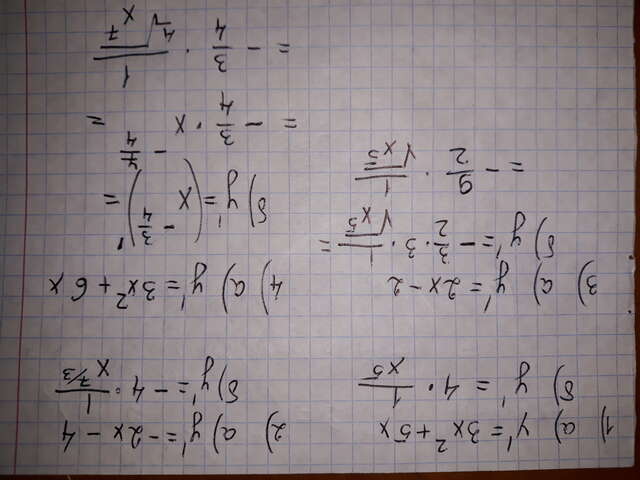 1) а) y' = 3x² + 5x
б) y' = 4 · 1/x⁵
2) а) y' = -2x - 4
б) y' = -4 · 1/x^(7/3)
3) а) y' = 2x - 2
б) y' = -3/2 · 3 · 1/√x⁵ =
= -9/2 · 1/√x⁵
4) а) y' = 3x² + 6x
б) y' = (x^(-3/4))' =
= -3/4 · x^(-7/4) =
= -3/4 · 1/⁴√x⁷